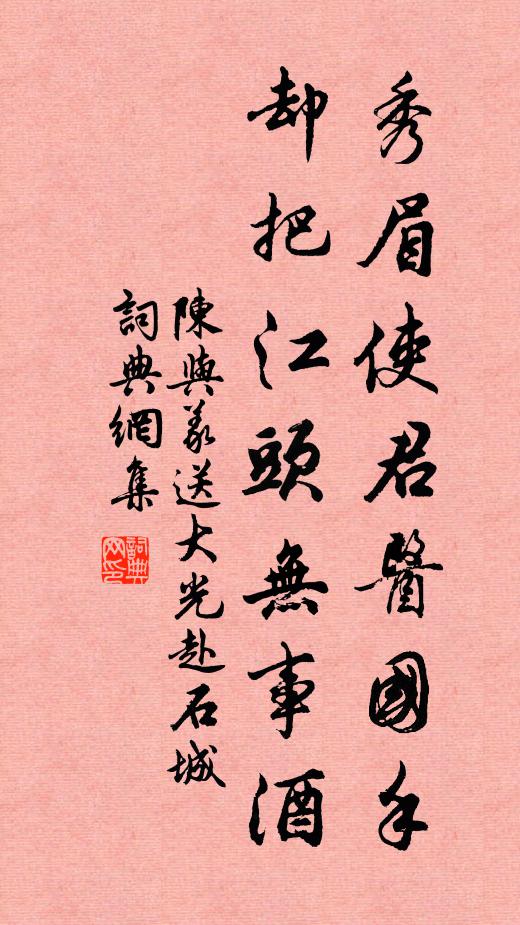 秀眉使君醫國手
却把江頭無事酒
陳與義送大光赴石城
詞典網集
詞典网印